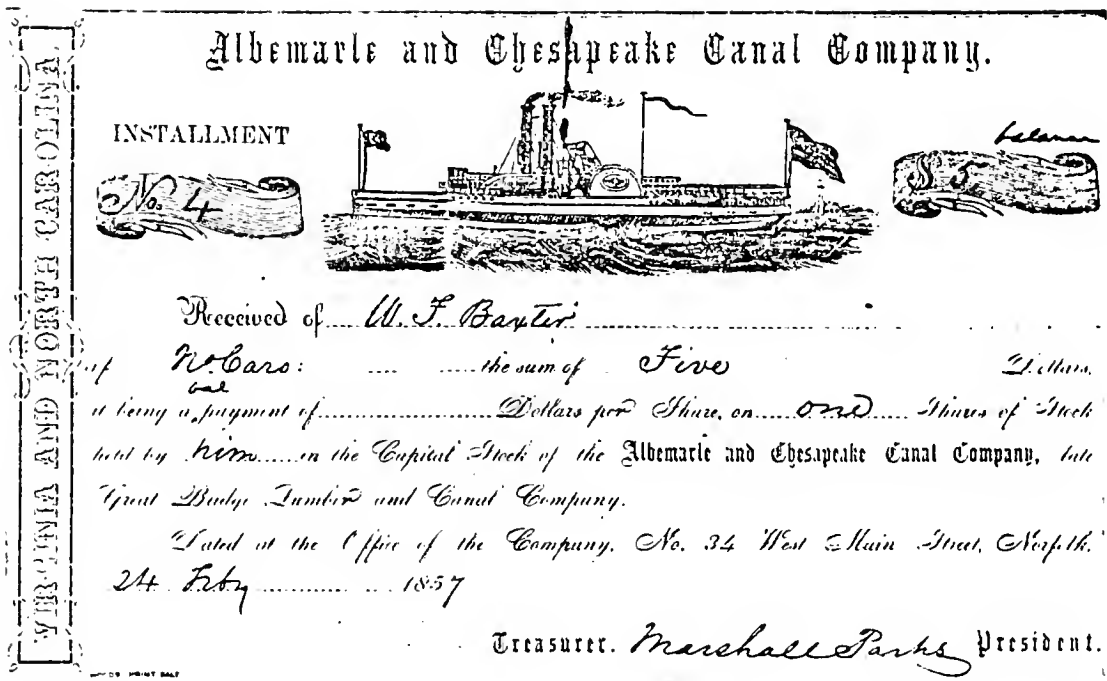 Albemarle and Chesapeake Canal Company.
VIRGINIA AND NORTH CAROLINA
INSTALLMENT
No. 4
balance
$ 5
Received of W. F. Baxter
of No Caro: the sum of Five Dollars,
bal
it being a payment of Dollars per Share, on one Shares of Stock
held by him in the Capital Stock of the Albemarle and Chesapeake Canal Company, late
Great Bridge Lumber and Canal Company.
Dated at the Office of the Company, No. 34 West Main Street, Norfolk.
24 Feby 1857
Treasurer. Marshall Parks President.